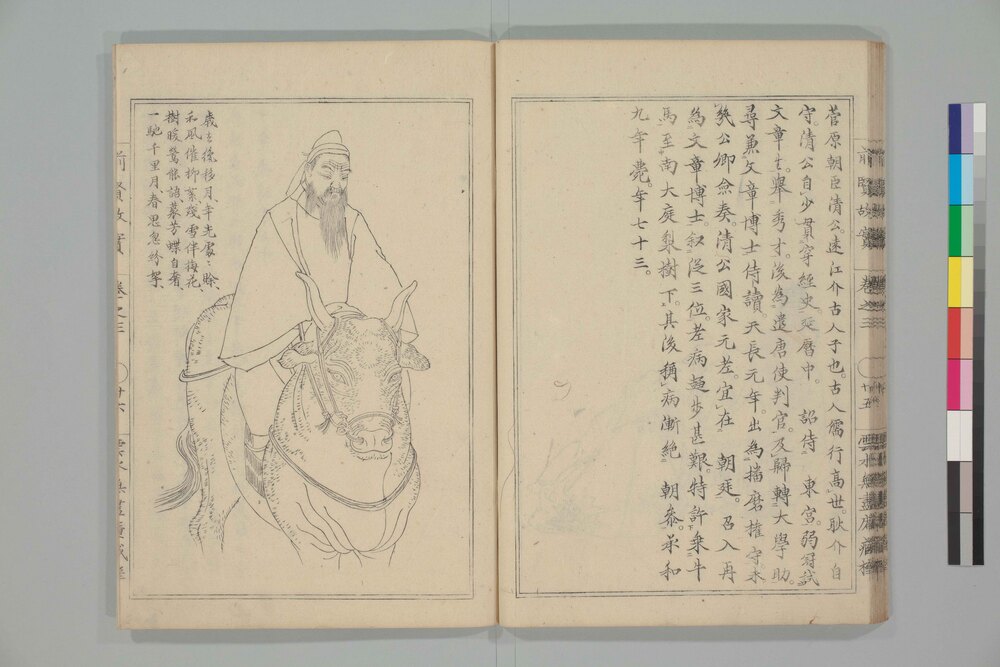 菅原朝臣清公。遠江介古人子也。古人儒行高世。耿介自
守。清公自少貫穿經史。延曆中。 詔侍 東宮。弱冠試
文章生。舉秀才。後為遣唐使判官。及歸轉大學助。
尋兼文章博士侍讀。天長元年。出為播磨權守。未
幾公卿僉奏。清公國家元老。宜在 朝廷。召入再
為文章博士。叙從三位。老病趨步甚艱。特許乘牛
馬至南大庭梨樹下。其後稱病漸絕 朝參。承和
九年薨。年七十三。
前賢故實 卷之三 十五
歲去後移月、年光處々賖
和風催柳絮殘雪伴梅花
樹暖鶯能語叢芳蝶自奢
一馳千里月春思忽紛挐
前賢故實 卷之三 廿六